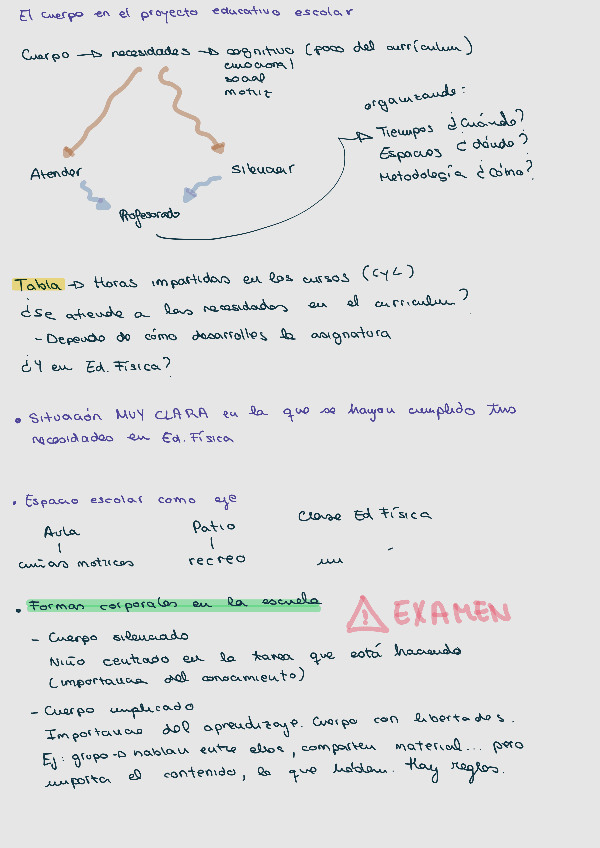 El cuerpo en el proyecto educativo escolar
Cuerpo → necesidades → cognitivo (poco del currículum)
emocional
social
motriz
organizando:
Tiempos ¿Cuándo?
Espacios ¿dónde?
Metodología ¿Cómo?
Atender
Silenciar
Profesorado
Tabla → Horas impartidas en los cursos (CyL)
¿Se atiende a las necesidades en el currículum?
- Depende de cómo desarrolles la asignatura
¿Y en Ed. Física?
• Situación MUY CLARA en la que se hayan cumplido tus
necesidades en Ed. Física
• Espacio escolar como eje
Aula
Patio
Clase Ed Física
cuñas motrices
recreo
• Formas corporales en la escuela
⚠ EXAMEN
- Cuerpo silenciado
Niño centrado en la tarea que está haciendo
(importancia del conocimiento)
- Cuerpo implicado
Importancia del aprendizaje. Cuerpo con libertades.
Ej: grupo → hablan entre ellos, comparten material... pero
importa el contenido, lo que hablan. Hay reglas.